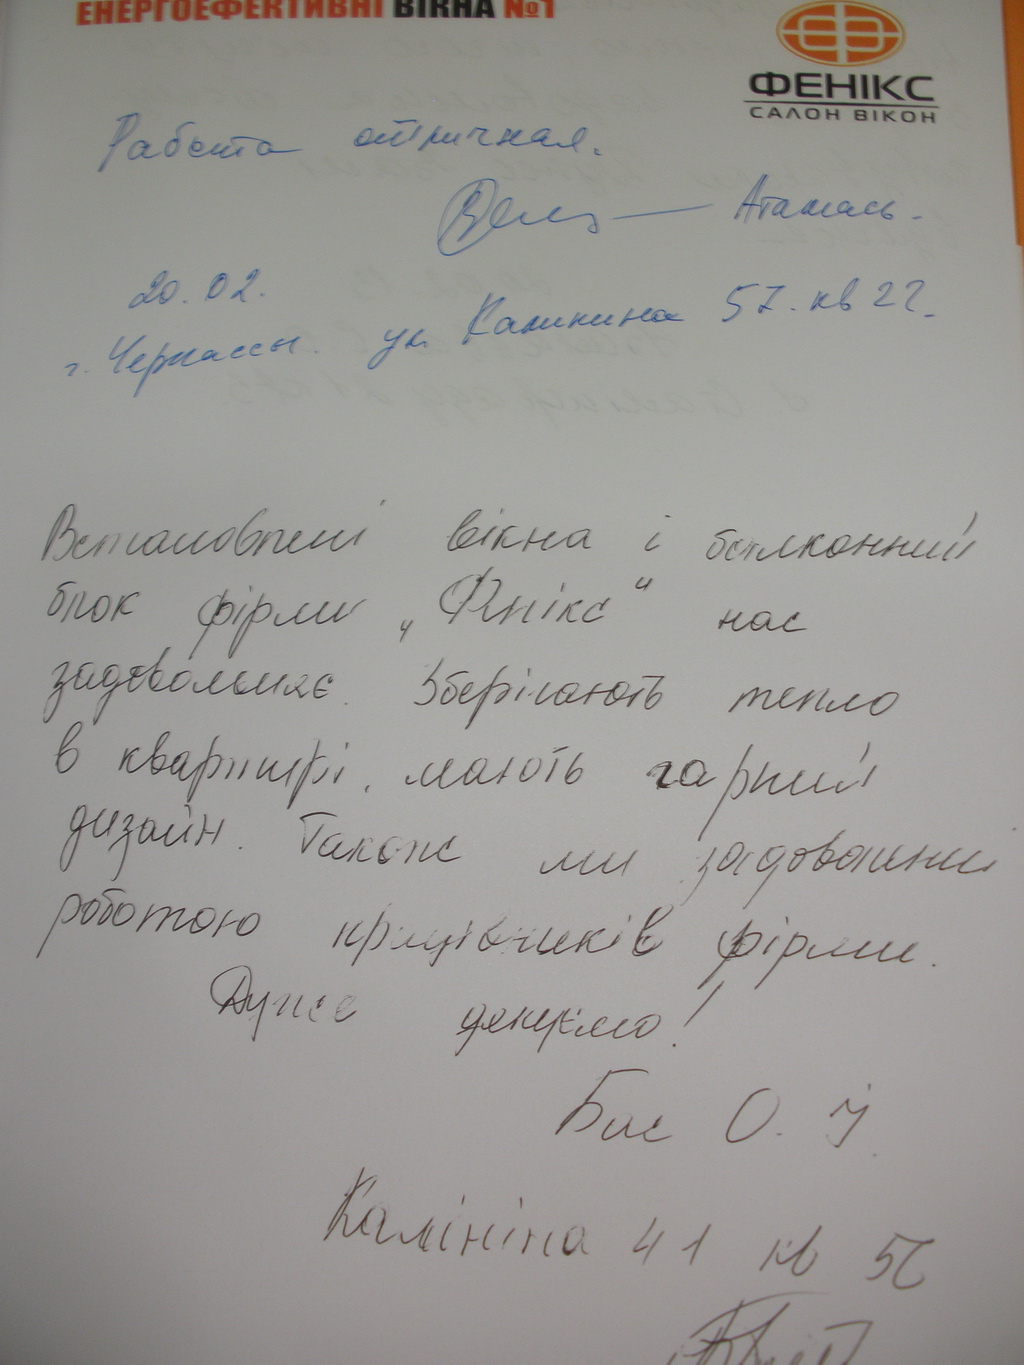 ЕНЕРГОЕФЕКТИВНІ ВІКНА №1
ФЕНІКС
САЛОН ВІКОН
Работа отличная.
Атамась.
20.02.
г. Черкассы. ул. Калинина 57. кв 22.
Встановлені вікна і балконний
блок фірми „Фенікс" нас
задовольняє. Зберігають тепло
в квартирі, мають гарний
дизайн. Також ми задоволені
роботою працівників фірми.
Дуже дякуємо!
Бас О. І.
Калініна 41 кв